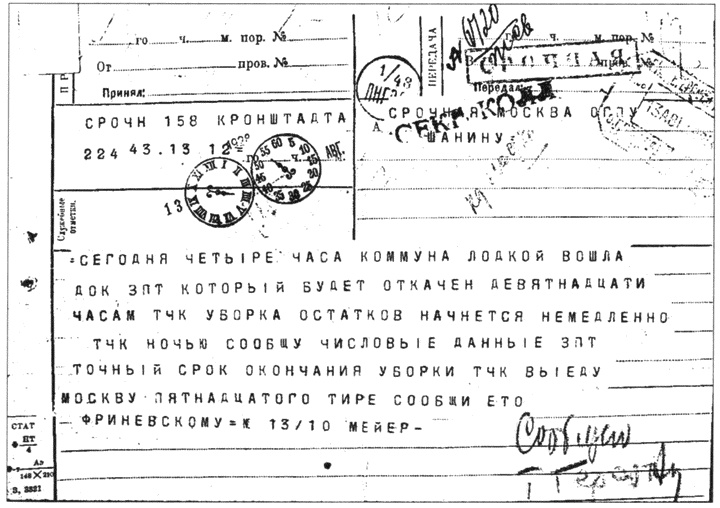 го ч. м. пор. №
От пров. №
Принял:
ПЕРЕДАЧА
го ч. м. пор. №
пров. №
Передал:
1/48
СРОЧНАЯ
СРОЧН 158 КРОНШТАДТА
224 43.13 12
1928
го ч. м.
АВГ.
13
СРОЧНАЯ МОСКВА ОГПУ
ШАНИНУ
Служебные
отметки.
=СЕГОДНЯ ЧЕТЫРЕ ЧАСА КОММУНА ЛОДКОЙ ВОШЛА
ДОК ЗПТ КОТОРЫЙ БУДЕТ ОТКАЧЕН ДЕВЯТНАДЦАТИ
ЧАСАМ ТЧК УБОРКА ОСТАТКОВ НАЧНЕТСЯ НЕМЕДЛЕННО
ТЧК НОЧЬЮ СООБЩУ ЧИСЛОВЫЕ ДАННЫЕ ЗПТ
ТОЧНЫЙ СРОК ОКОНЧАНИЯ УБОРКИ ТЧК ВЫЕДУ
МОСКВУ ПЯТНАДЦАТОГО ТИРЕ СООБЩИ ЕТО
ФРИНЕВСКОМУ=№ 13/10 МЕЙЕР-
СТАТ
ПТ
4
А5
148×210
В, 3321